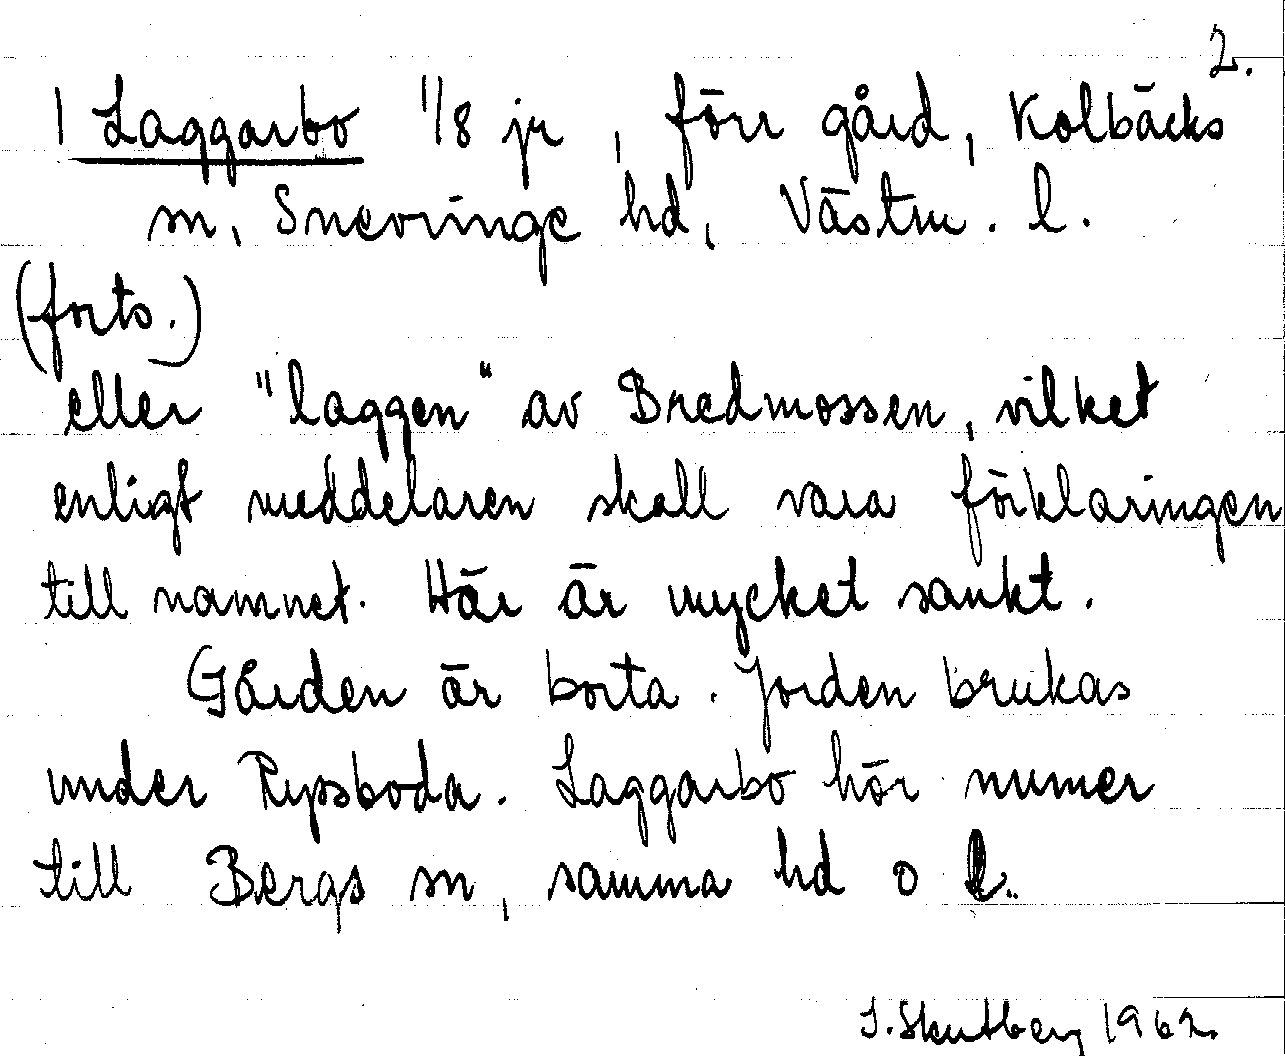 2.
1 Laggarbo 1/8 jr, förr gård, Kolbäcks
sn, Snevringe hd, Västm. l.
(forts.)
eller "laggen" av Bredmossen, vilket
enligt meddelaren skall vara förklaringen
till namnet. Här är mycket sankt.
Gården är borta. Jorden brukas
under Rypsboda. Laggarbo hör numer
till Bergs sn, samma hd o l.
1962.